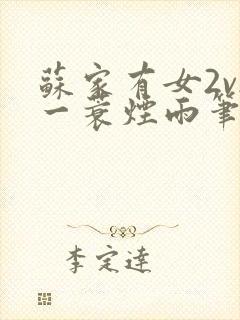 蘇家有女2v
一蓑煙雨筆
李定達